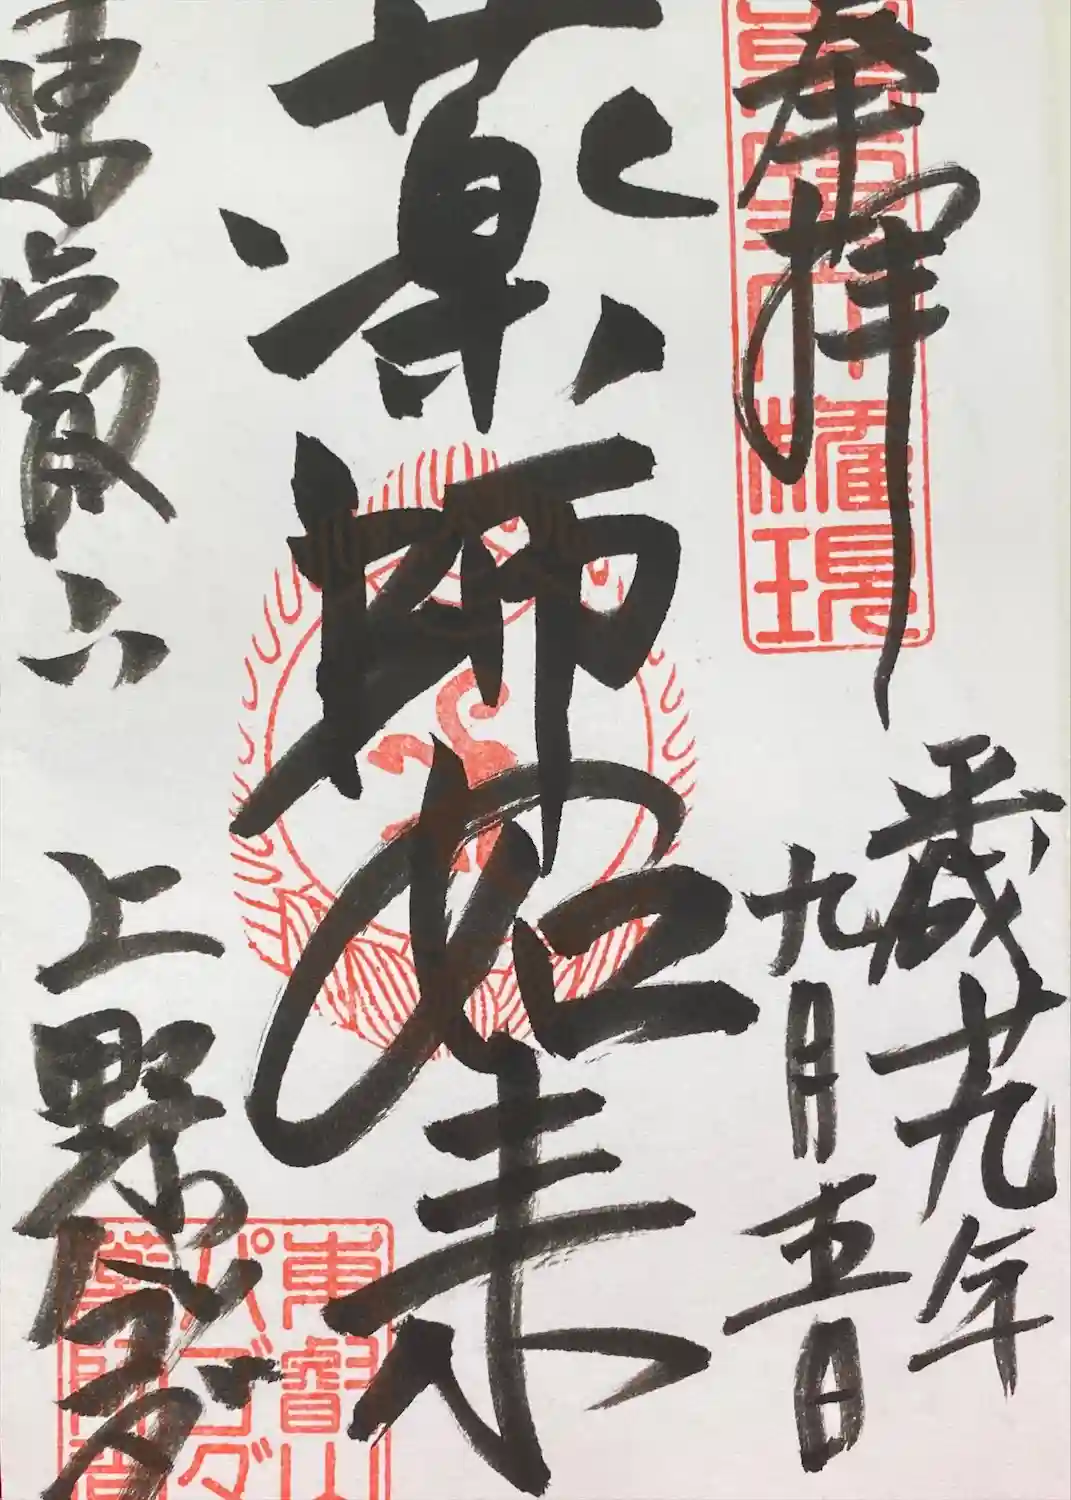 奉拝
權現
平成廿九年
九月五日
薬師如来
東叡山
上野
東叡山
パゴダ